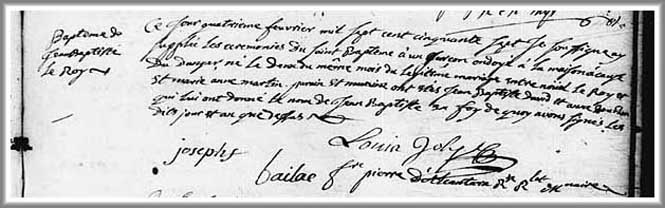 Baptême de
Jean Baptiste
Le Roy
Ce jour quatrième fevrier mil sept cent cinquante sept je soussigné ay
supplié Les ceremonies du saint Baptême à un garçon ondoyé à la maison à cause
du danger né le deux du même mois du Legitime mariage entre Le Roy et
marie anne martin parain et maraine ont été jean Baptiste et anne
qui Lui ont donné Le nom de jean Baptiste En foy de quoy avons signés Les
dits jour et an que dessus
josephs Louis Joly
bailac fre pierre